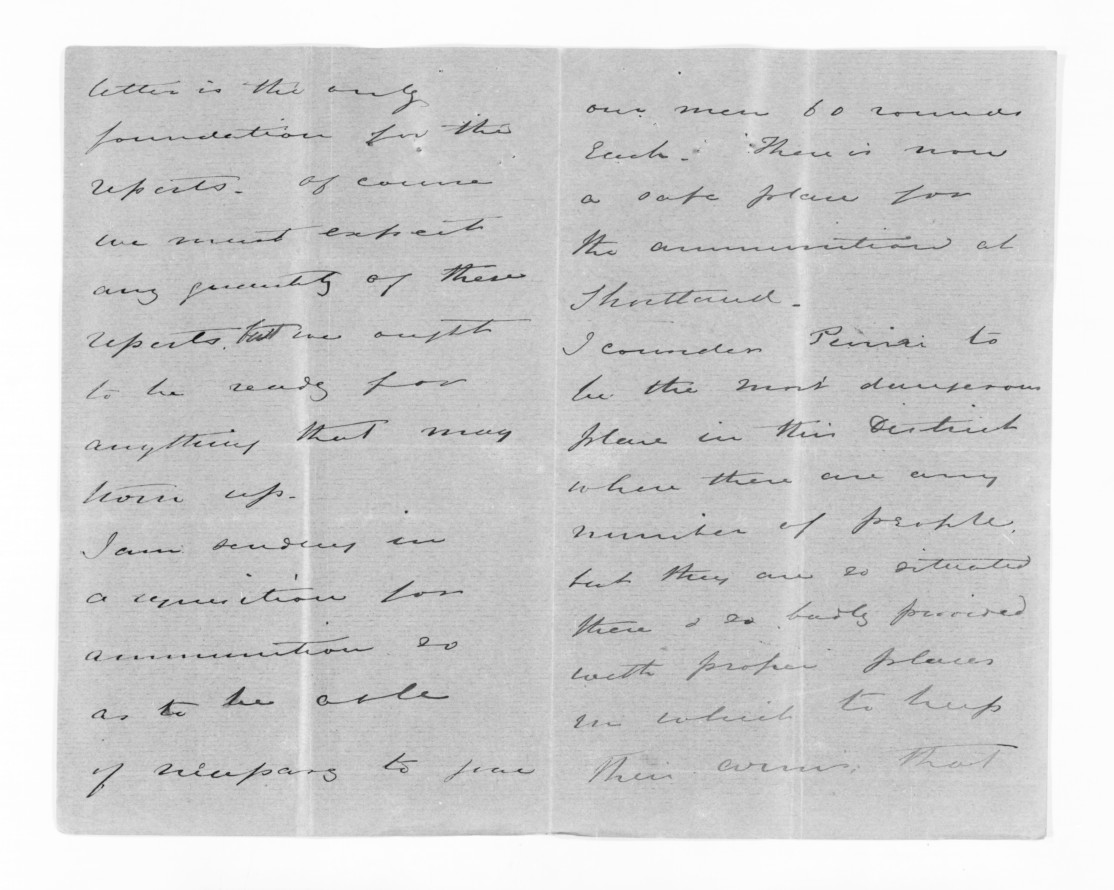 letter is the only
foundation for the
reports. Of course
we must expect
any quantity of these
reports, but we ought
to be ready for
anything that may
turn up.
I am sending in
a requisition for
ammunition so
as to be able
if necessary to give
our men 60 rounds
Each. There is now
a safe place for
the ammunition at
Shortland.
I consider Peninci to
be the most dangerous
place in this District
where there are any
number of people,
but they are so situated
there & so badly provided
with proper places
in which to keep
their arms, that